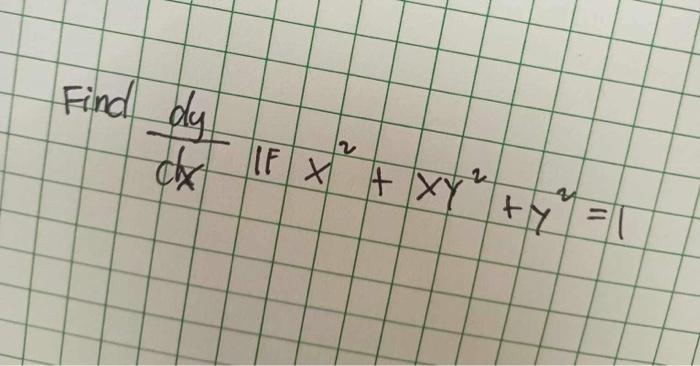 Find dy/dx IF x² + xy² + y² = 1